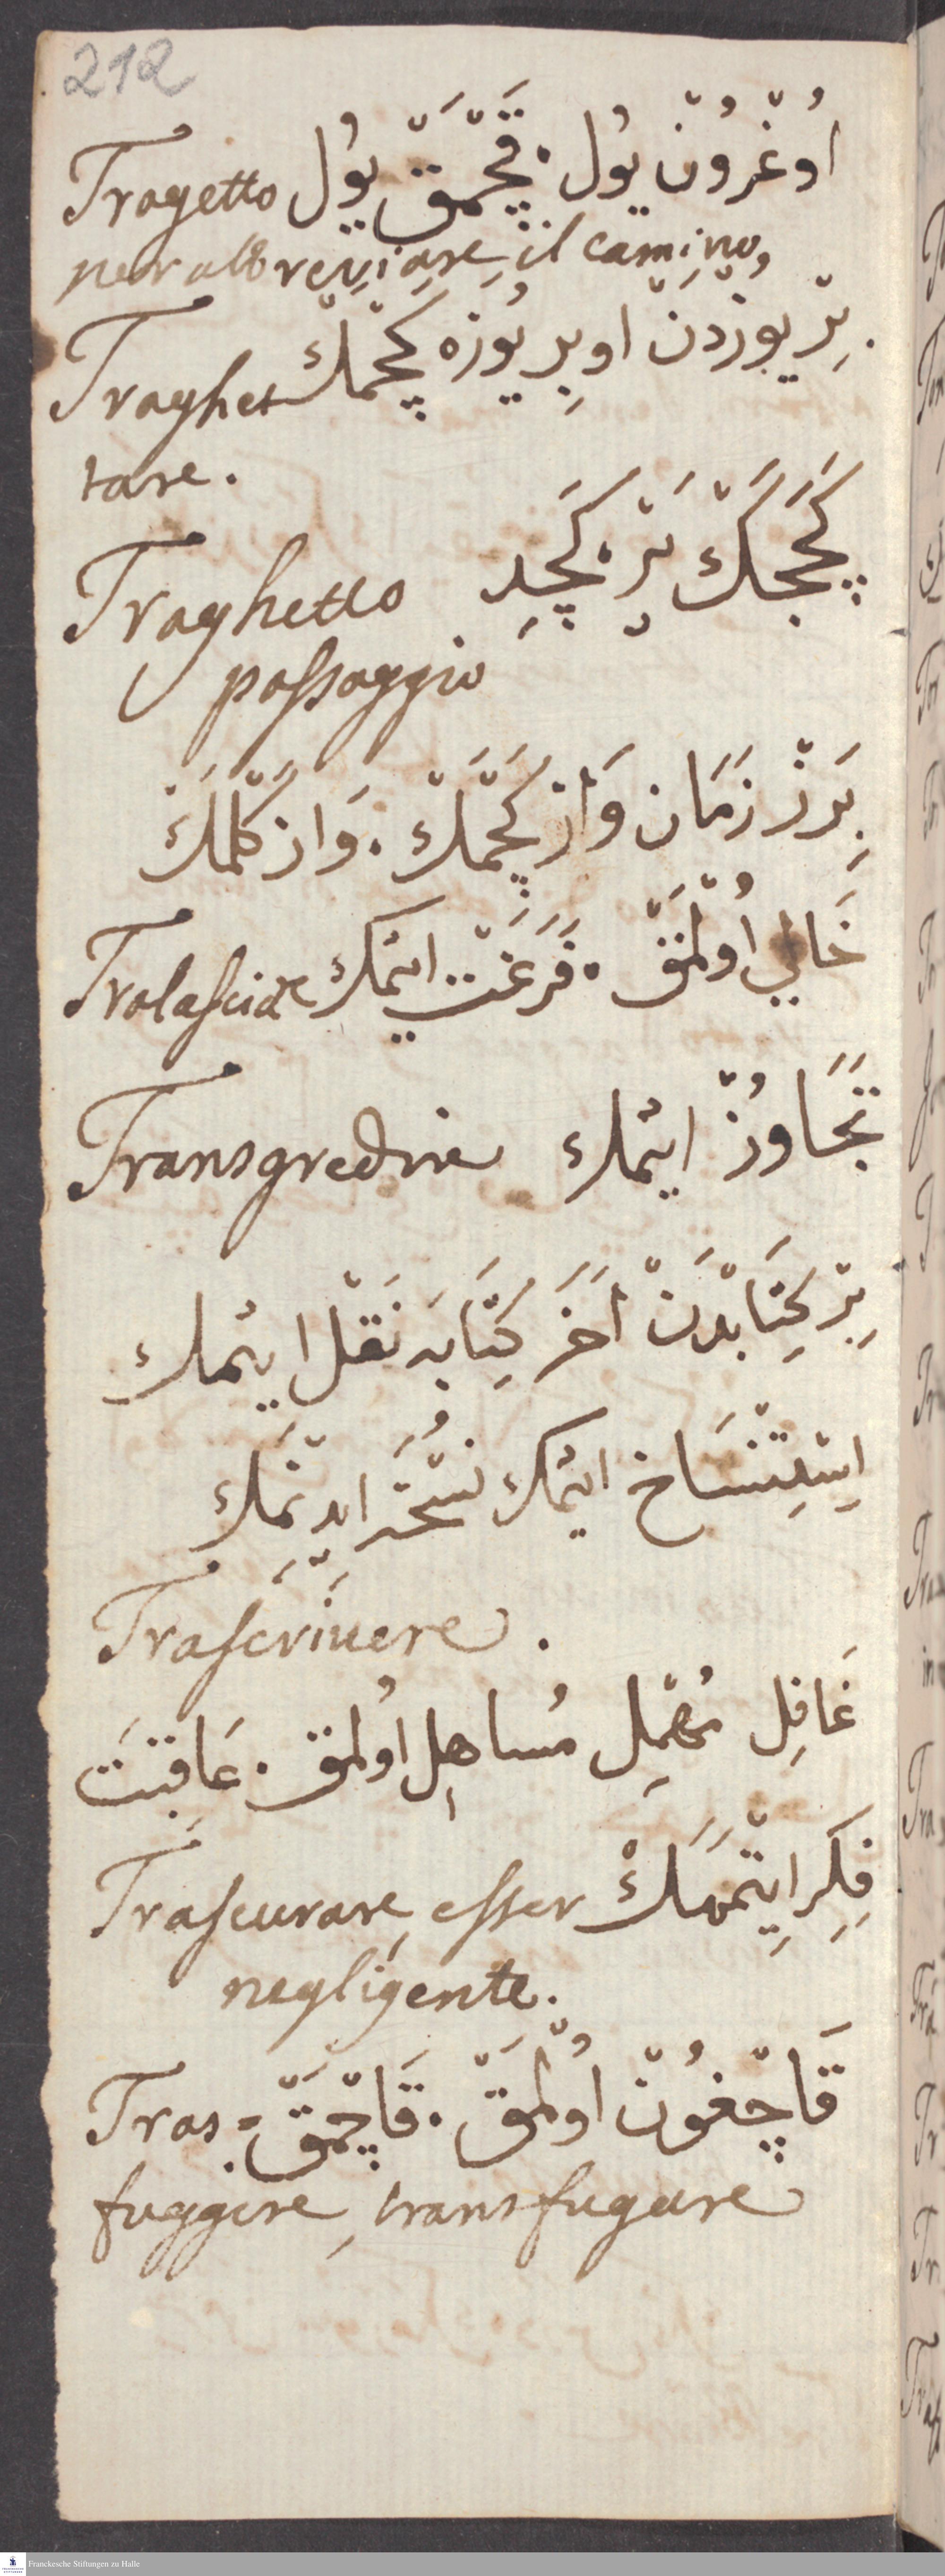 212
Tragetto اُوغْرُونْ يُول . قَچَّمَقْ يُول
per abbreviare il camino,
Traghet بِرْ يوزدَنْ او بِر يُوزه كَچْمَك
tare.
Traghetto كَچَجَكْ يَرْ . كَچِد
passaggio
بِرَزْ زَمَان وَازْ كَچْمَكْ . وَاز كَلْمَكْ
Tralasciare خَالِي اُولْمَقْ . فَرَغَتْ ايتْمَك
Transgredire تَجَاوُزْ ايتمك
بِرْ كِتَابْدَنْ اَخَر كِتَابَه نَقْلْ ايتمك
اِسْتِنْسَاخ ايتمك نُسْخَه ايدِنْمَك
Trascrivere .
غَافِل مُهْمِل مُساهِل اُولمق . عَاقِبَتَ
Trascurare, esser فِكِر ايتْمَمَكْ
negligente.
Tras= قَاچْغُونْ اُولْمَقْ . قَاچْمَقْ .
fuggere, transfugare
Franckesche Stiftungen zu Halle